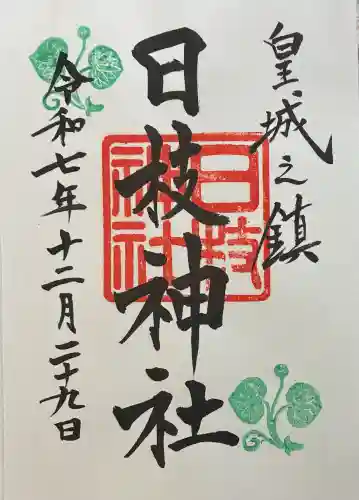 皇城之鎮
日枝神社
日枝
神社
令和七年十二月二十九日